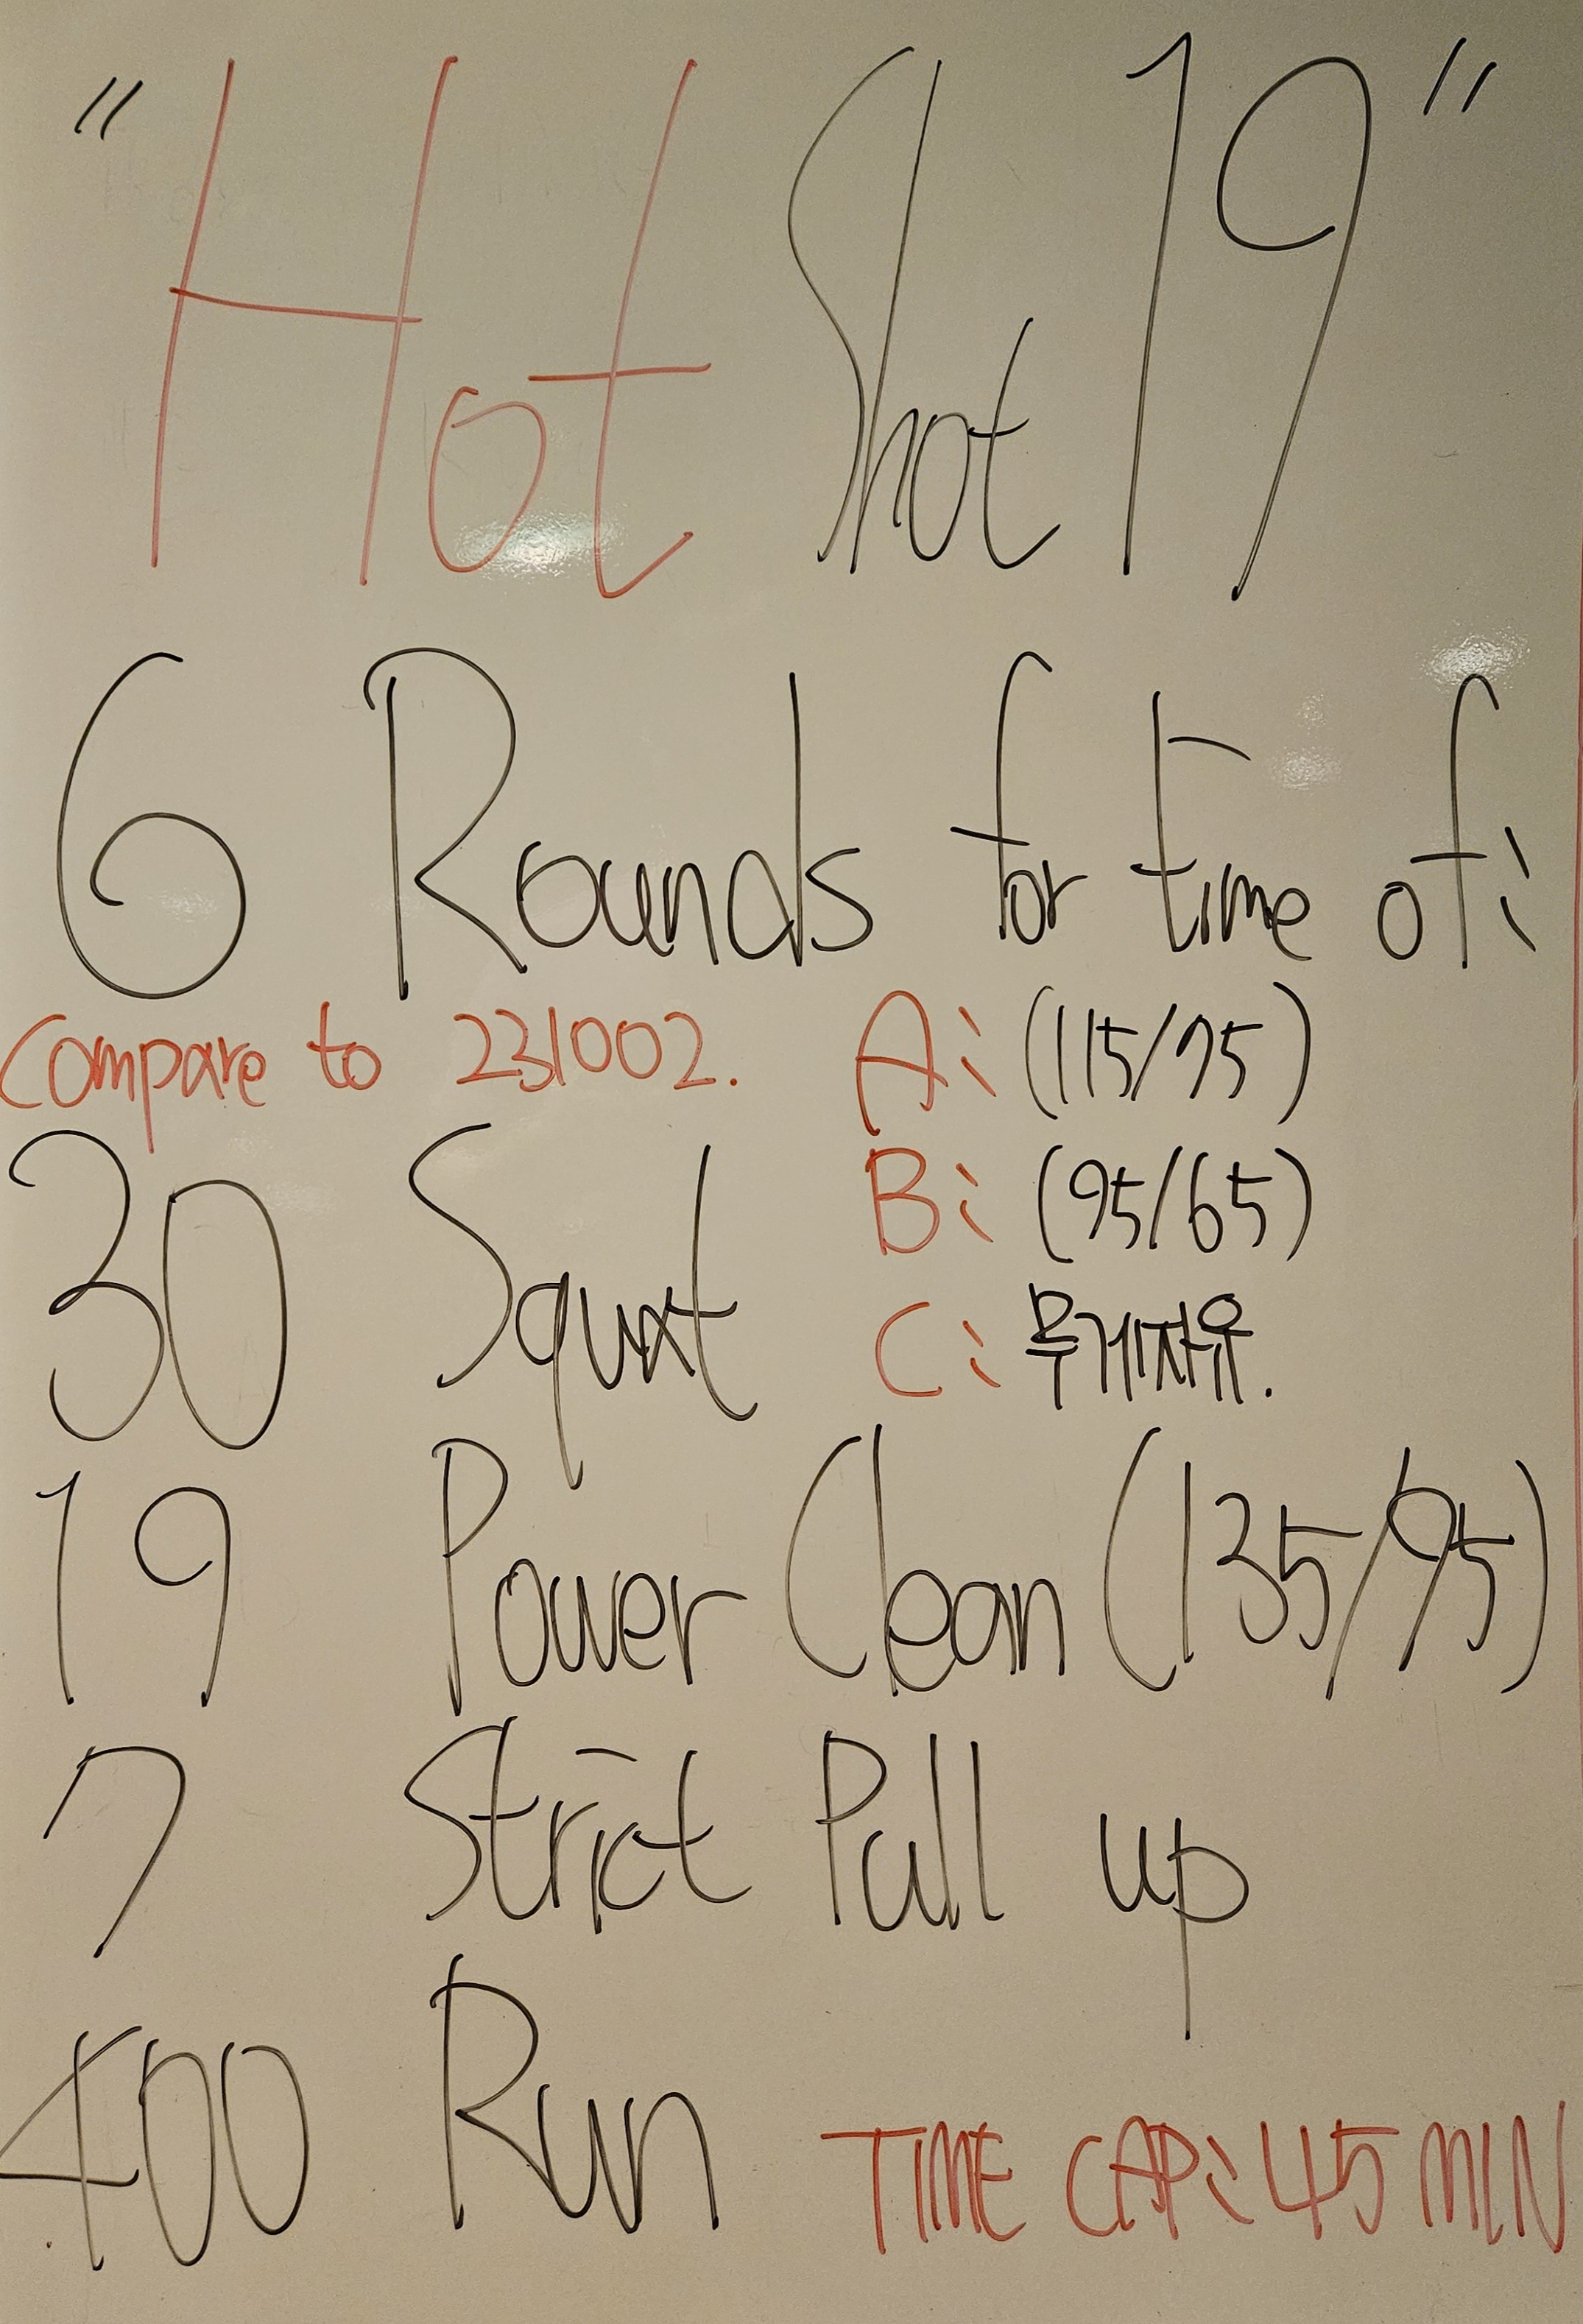 "Hot Shot 19"
6 Rounds for time of:
Compare to 231002. A: (115/75)
B: (95/65)
30 Squat
C: 무게자유.
19 Power Clean (135/95)
7 Strict Pull up
400 Run
TIME CAP: 45 MIN